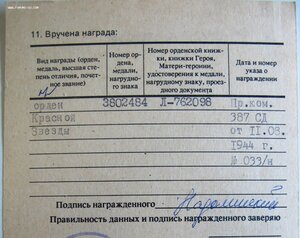 11. Вручена награда:
Вид награды (орден, медаль, высшая степень отличия, почетное звание)
Номер ордена, медали, нагрудного знака
Номер орденской книжки, книжки Героя, Матери-героини, удостоверения к медали, нагрудному знаку, проездного документа
Дата и номер указа о награждении
орден 3802484 Л-762098 Пр.ком.
Красной 387 СД
Звезды от 11.08.
1944 г.
№ 033/н
Подпись награжденного
Правильность данных и подпись награжденного заверяю